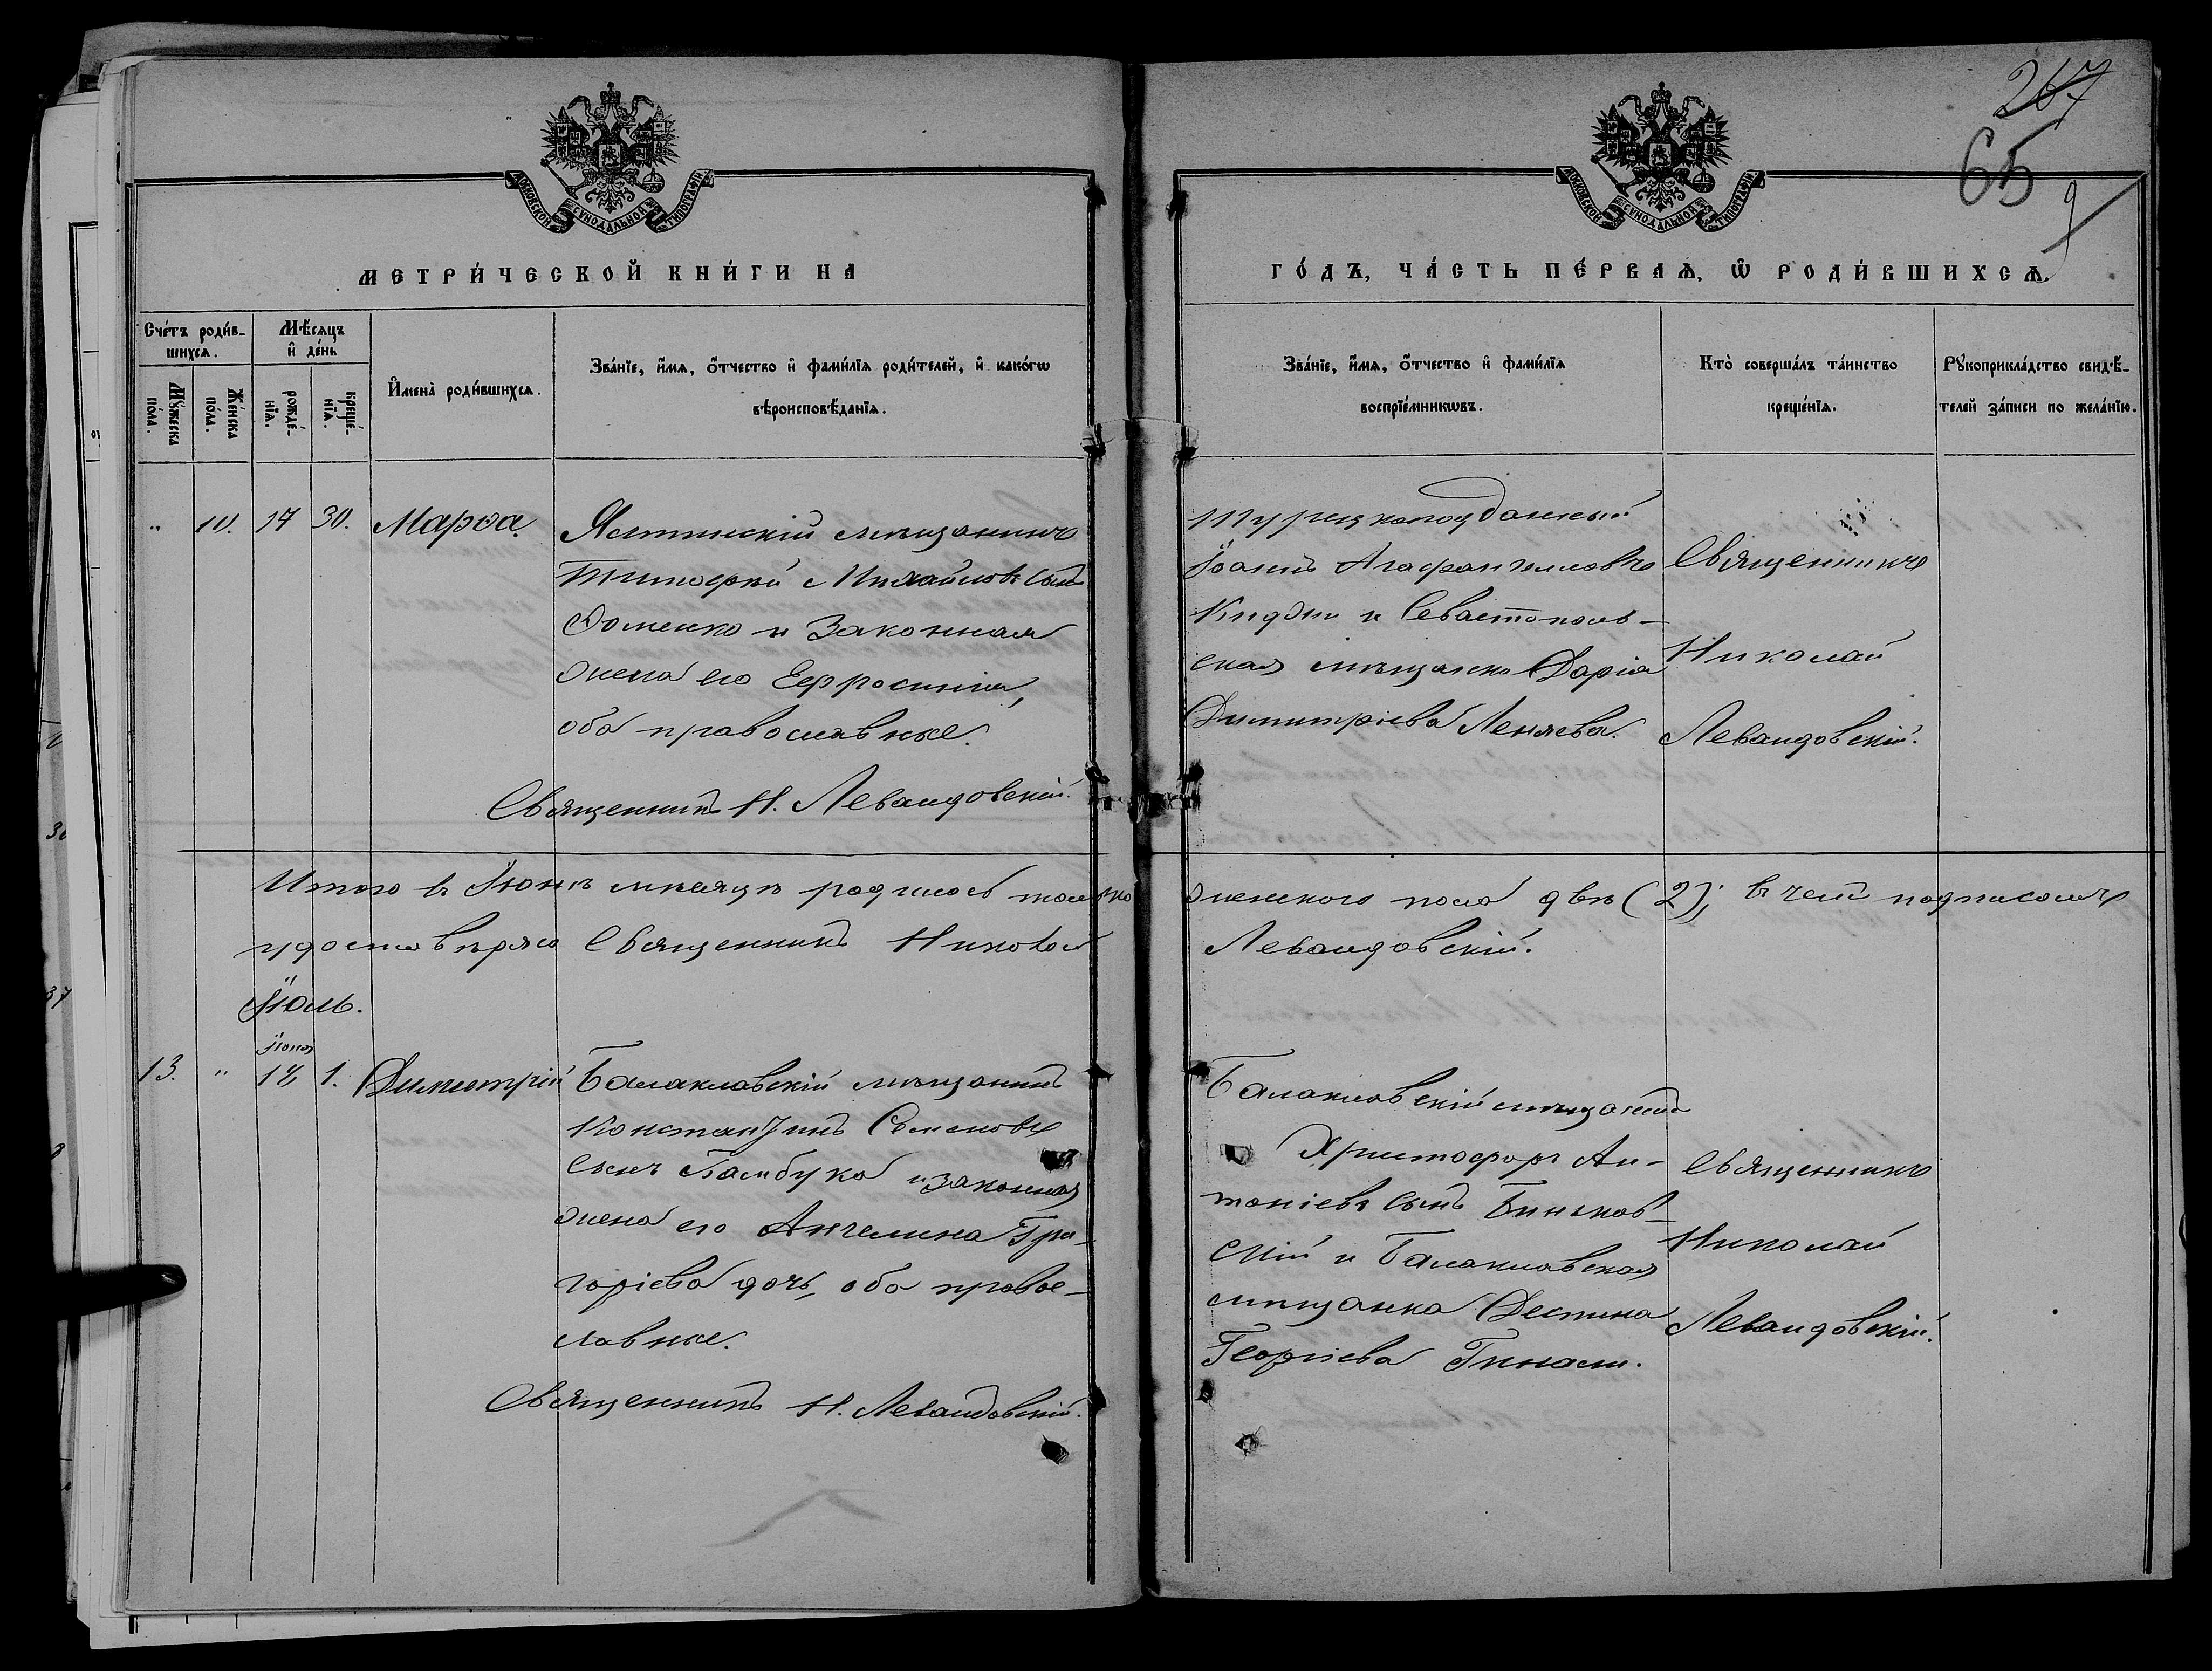 267
65
МОСКОВСКОЙ СѴНОДАЛЬНОЙ ТИПОГРАФІИ
МОСКОВСКОЙ СѴНОДАЛЬНОЙ ТИПОГРАФІИ
МЕТРИ́ЧЕСКОЙ КНИ́ГИ НА
ГО́ДЪ, ЧА́СТЬ ПЕ́РВАѦ, Ѿ РОДИ́ВШИХСѦ.
Сче́тъ роди́в-
шихсѧ.
Мꙋ́жеска
по́ла.
Же́нска
по́ла.
Мѣ́сѧцъ
и҆ де́нь
рожде́-
нїѧ.
креще́-
нїѧ.
И҆мена̀ роди́вшихсѧ.
Зва́нїе, и҆́мѧ, ѻ҆́тчество и҆ фами́лїѧ роди́телей, и҆ како́гѡ
вѣроисповѣ́данїѧ.
Зва́нїе, и҆́мѧ, ѻ҆́тчество и҆ фами́лїѧ
воспрїе́мникѡвъ.
Кто̀ соверша́лъ та́инство
креще́нїѧ.
Рꙋкоприкла́дство свидѣ́-
телей за́писи по жела́нїю.
" 10. 17 30. Марѳа.
Ялтинскій мѣщанинъ
Тимофей Михайловъ сынъ
Доменко и законная
жена его Ефросинія,
оба православные.
Священникъ Н. Левандовскій.
Турецкоподданный
Іоаннъ Агафангеловъ
и Севастополь-
ская мѣщанка Дарія
Димитріева Леняева.
Священникъ
Николай
Левандовскій.
Итого въ Іюнѣ мѣсяцѣ родилось только женскаго пола двѣ (2); въ чемъ подписомъ
удостовѣряю Священникъ Николай Левандовскій.
Іюль.
Іюня
13. " 18 1. Димитрій
Балаклавскій мѣщанинъ
Константинъ Семеновъ
сынъ Памбуко и законная
жена его Ангелина Гри-
горіева дочь, оба правос-
лавные.
Священникъ Н. Левандовскій.
Балаклавскій мѣщанинъ
Христофоръ Ан-
тоніевъ сынъ Биньков-
скій и Балаклавская
мѣщанка Деспина
Георгіева Гинали.
Священникъ
Николай
Левандовскій.